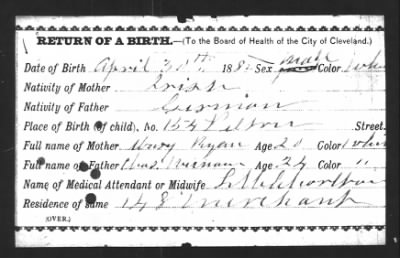 RETURN OF A BIRTH.—(To the Board of Health of the City of Cleveland.)
Date of Birth April 30th 188 Sex male Color White
Nativity of Mother Irish
Nativity of Father German
Place of Birth (of child), No. 154 Street.
Full name of Mother Mary Ryan Age 20 Color White
Full name of Father Chas. Age 24 Color "
Name of Medical Attendant or Midwife
Residence of same 148 Merchant
(OVER.)